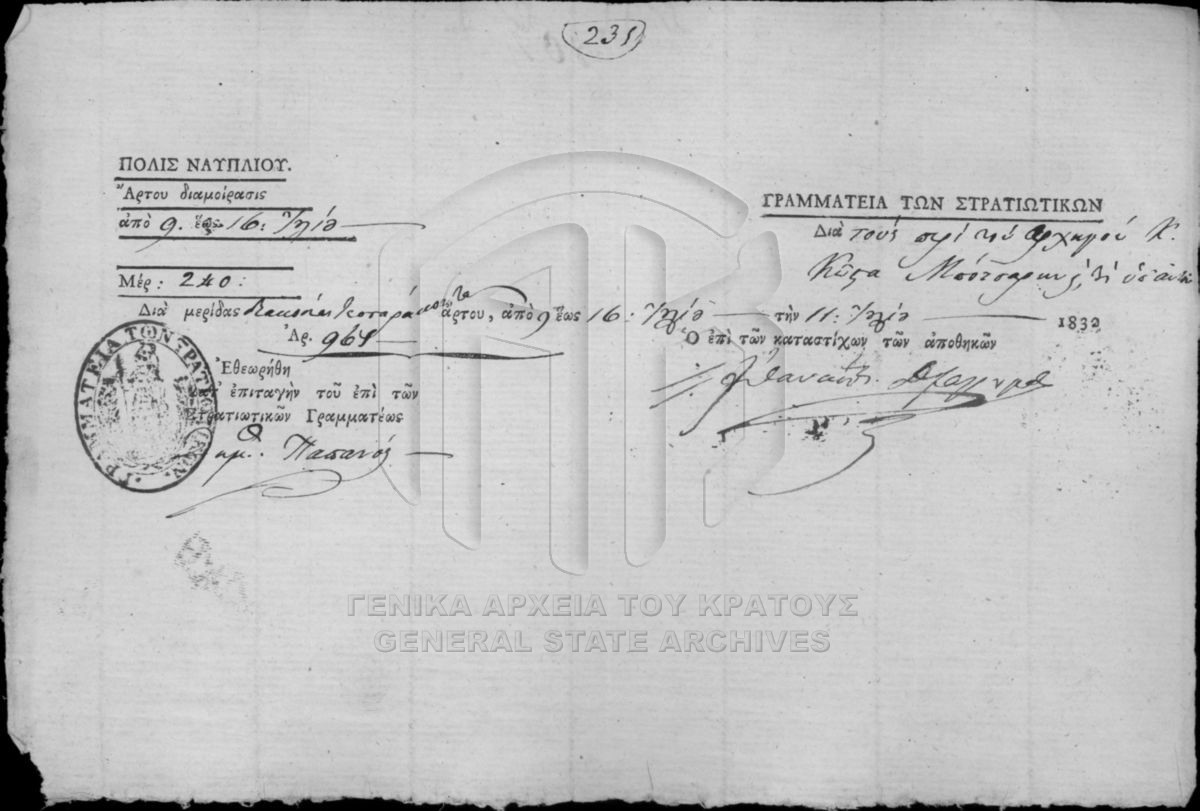 231
ΠΟΛΙΣ ΝΑΥΠΛΙΟΥ.
Ἄρτου διαμοίρασις
ἀπὸ 9. ἕως 16: Ἰουλίου
Μέρ: 240:
ΓΡΑΜΜΑΤΕΙΑ ΤΩΝ ΣΤΡΑΤΙΩΤΙΚΩΝ
Διὰ τοὺς περὶ τὸν ἀρχηγὸν Κ.
Κῶστα Μπότσαρην
Διὰ μερίδας διακοσίας τεσσαράκοντα ἄρτου, ἀπὸ 9 ἕως 16: Ἰουλίου τὴν 11: Ἰουλίου 1832
Ἀρ. 964
Ὁ ἐπὶ τῶν καταστίχων τῶν ἀποθηκῶν
Ἐθεωρήθη
ἐπιταγὴν τοῦ ἐπὶ τῶν
Στρατιωτικῶν Γραμματέως
ΓΡΑΜΜΑΤΕΙΑ ΤΩΝ ΣΤΡΑΤΙΩΤΙΚΩΝ
ΓΕΝΙΚΑ ΑΡΧΕΙΑ ΤΟΥ ΚΡΑΤΟΥΣ
GENERAL STATE ARCHIVES